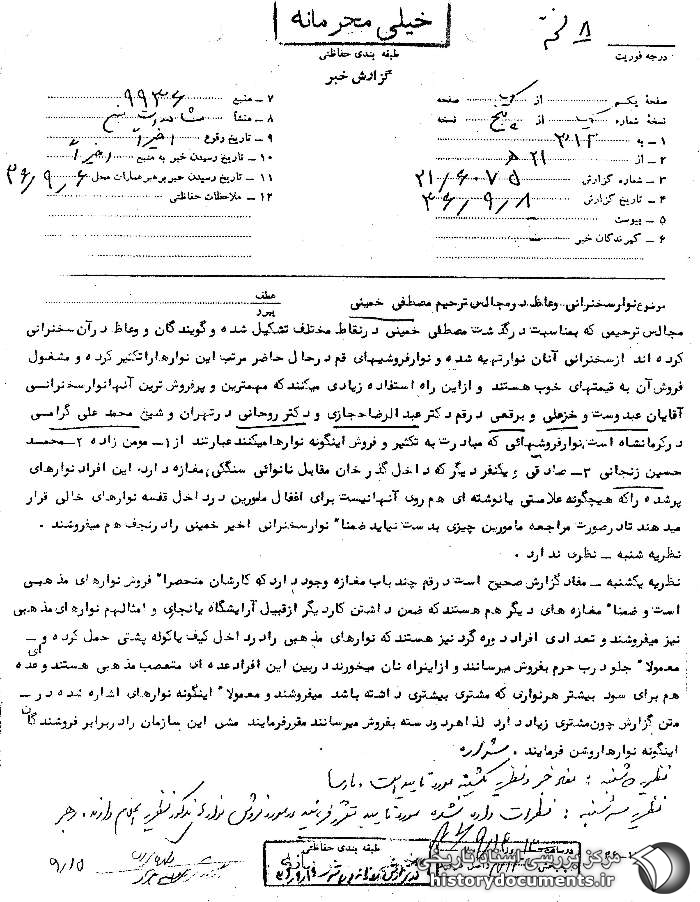 خیلی محرمانه
۸
درجه فوریت
طبقه بندی حفاظتی
گزارش خبر
صفحه یکم از یک صفحه
نسخه شماره یک از پنج نسخه
۱ – به ۳۱۲
۲ – از ۲۱ ه‍
۳ – شماره گزارش ۲۱/۶۰۷۵
۴ – تاریخ گزارش ۳۶/۹/۸
۵ – پیوست
۶ – گیرندگان خبر
۷ – منبع ۹۹۳۶
۸ – منشأ
۹ – تاریخ وقوع اخیراً
۱۰ – تاریخ رسیدن خبر به منبع اخیراً
۱۱ – تاریخ رسیدن خبر برهبر عملیات محل ۳۶/۹/۶
۱۲ – ملاحظات حفاظتی
موضوع نوار سخنرانی وعاظ در مجالس ترحیم مصطفی خمینی
عطف
پیرو
مجالس ترحیمی که بمناسبت درگذشت مصطفی خمینی در نقاط مختلف تشکیل شده و گویندگان و وعاظ در آن سخنرانی
کرده اند از سخنرانی آنان نوار تهیه شده و نوار فروشیهای قم در حال حاضر مرتب این نوارها را تکثیر کرده و مشغول
فروش آن به قیمتهای خوب هستند و از این راه استفاده زیادی میکنند که مهمترین و پرفروش ترین آنها نوار سخنرانی
آقایان عبدوست و خزعلی و برقعی در قم دکتر عبدالرضا حجازی و دکتر روحانی در تهران و شیخ محمد علی گرامی
در کرمانشاه است، نوار فروشهائی که مبادرت به تکثیر و فروش اینگونه نوارها میکنند عبارتند از ۱– مومن زاده ۲– محمد
حسین زنجانی ۳– صادقی و یکنفر دیگر که داخل گذر خان مقابل نانوائی سنگکی، مغازه دارد. این افراد نوارهای
پر شده را که هیچگونه علامتی یا نوشته ای هم روی آنها نیست برای اغفال مامورین در داخل قفسه نوارهای خالی قرار
میدهند تا در صورت مراجعه مامورین چیزی بدست نیاید ضمناً نوار سخنرانی اخیر خمینی را در نجف هم میفروشند .
نظریه شنبه – نظری ندارد .
نظریه یکشنبه – مفاد گزارش صحیح است در قم چند باب مغازه وجود دارد که کارشان منحصراً فروش نوارهای مذهبی
است و ضمناً مغازه های دیگر هم هستند که ضمن داشتن کار دیگر از قبیل آرایشگاه یا نجاری و امثالهم نوارهای مذهبی
نیز میفروشند و تعدادی افراد دوره گرد نیز هستند که نوارهای مذهبی را در داخل کیف یا کوله پشتی حمل کرده و –
معمولاً جلو درب حرم بفروش میرسانند و از اینراه نان میخورند در بین این افراد عده ای متعصب مذهبی هستند و عده ای
هم برای سود بیشتر هر نواری که مشتری بیشتری داشته باشد میفروشند و معمولاً اینگونه نوارهای اشاره شده در –
متن گزارش چون مشتری زیاد دارد لذا هر دو دسته بفروش میرسانند مقرر فرمایند مشی این سازمان را در برابر فروشندگان
اینگونه نوارها روشن فرمایند .
نظریه دوشنبه : مفاد خبر و نظریه یکشنبه مورد تایید است. پارسا
نظریه سه شنبه : نظرات داده شده مورد تایید
طبقه بندی حفاظتی
۹/۱۵
مرکز بررسی اسناد تاریخی
historydocuments.ir